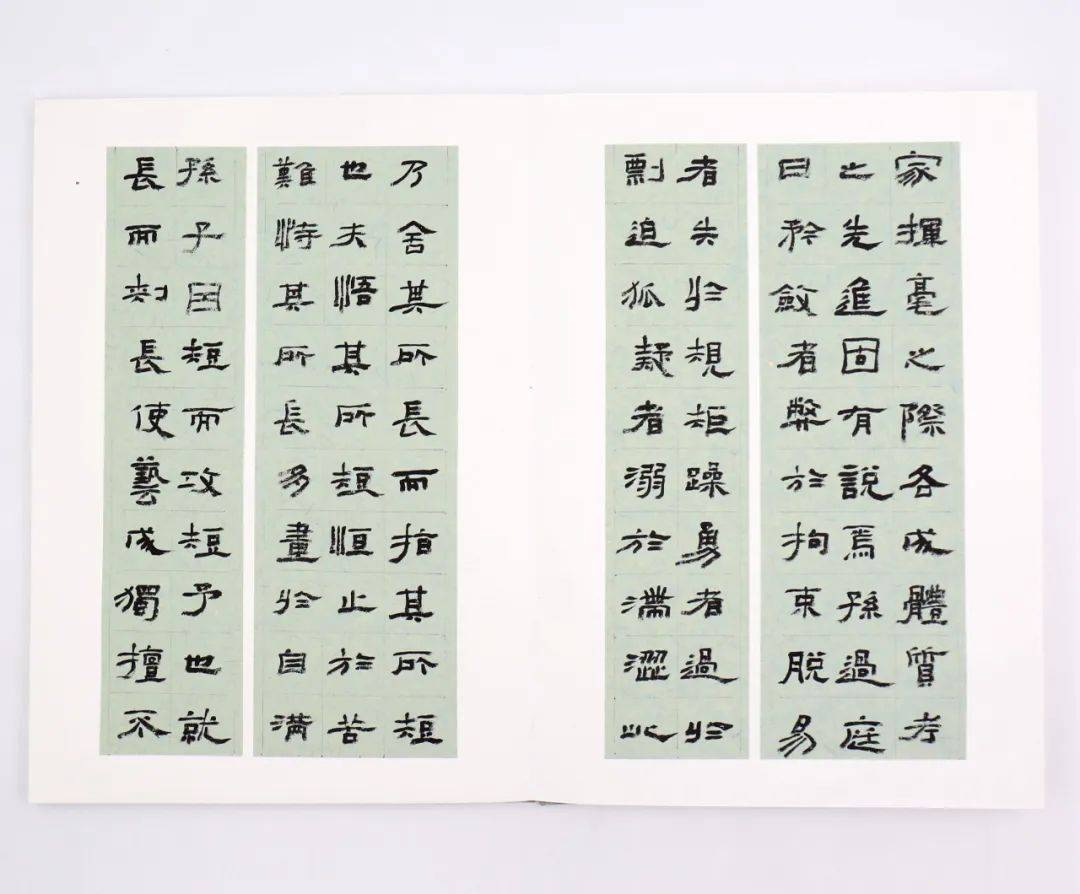 家揮毫之際各成體質考
之先進固有說焉孫過庭
曰矜斂者弊於拘束脫易
者失於規矩躁勇者過於
剽迫狐疑者溺於滯澀此
乃舍其所長而指其所短
也夫悟其所短恒止於苦
難恃其所長多畫於自滿
孫子因短而攻短予也就
長而刺長使藝成獨擅不